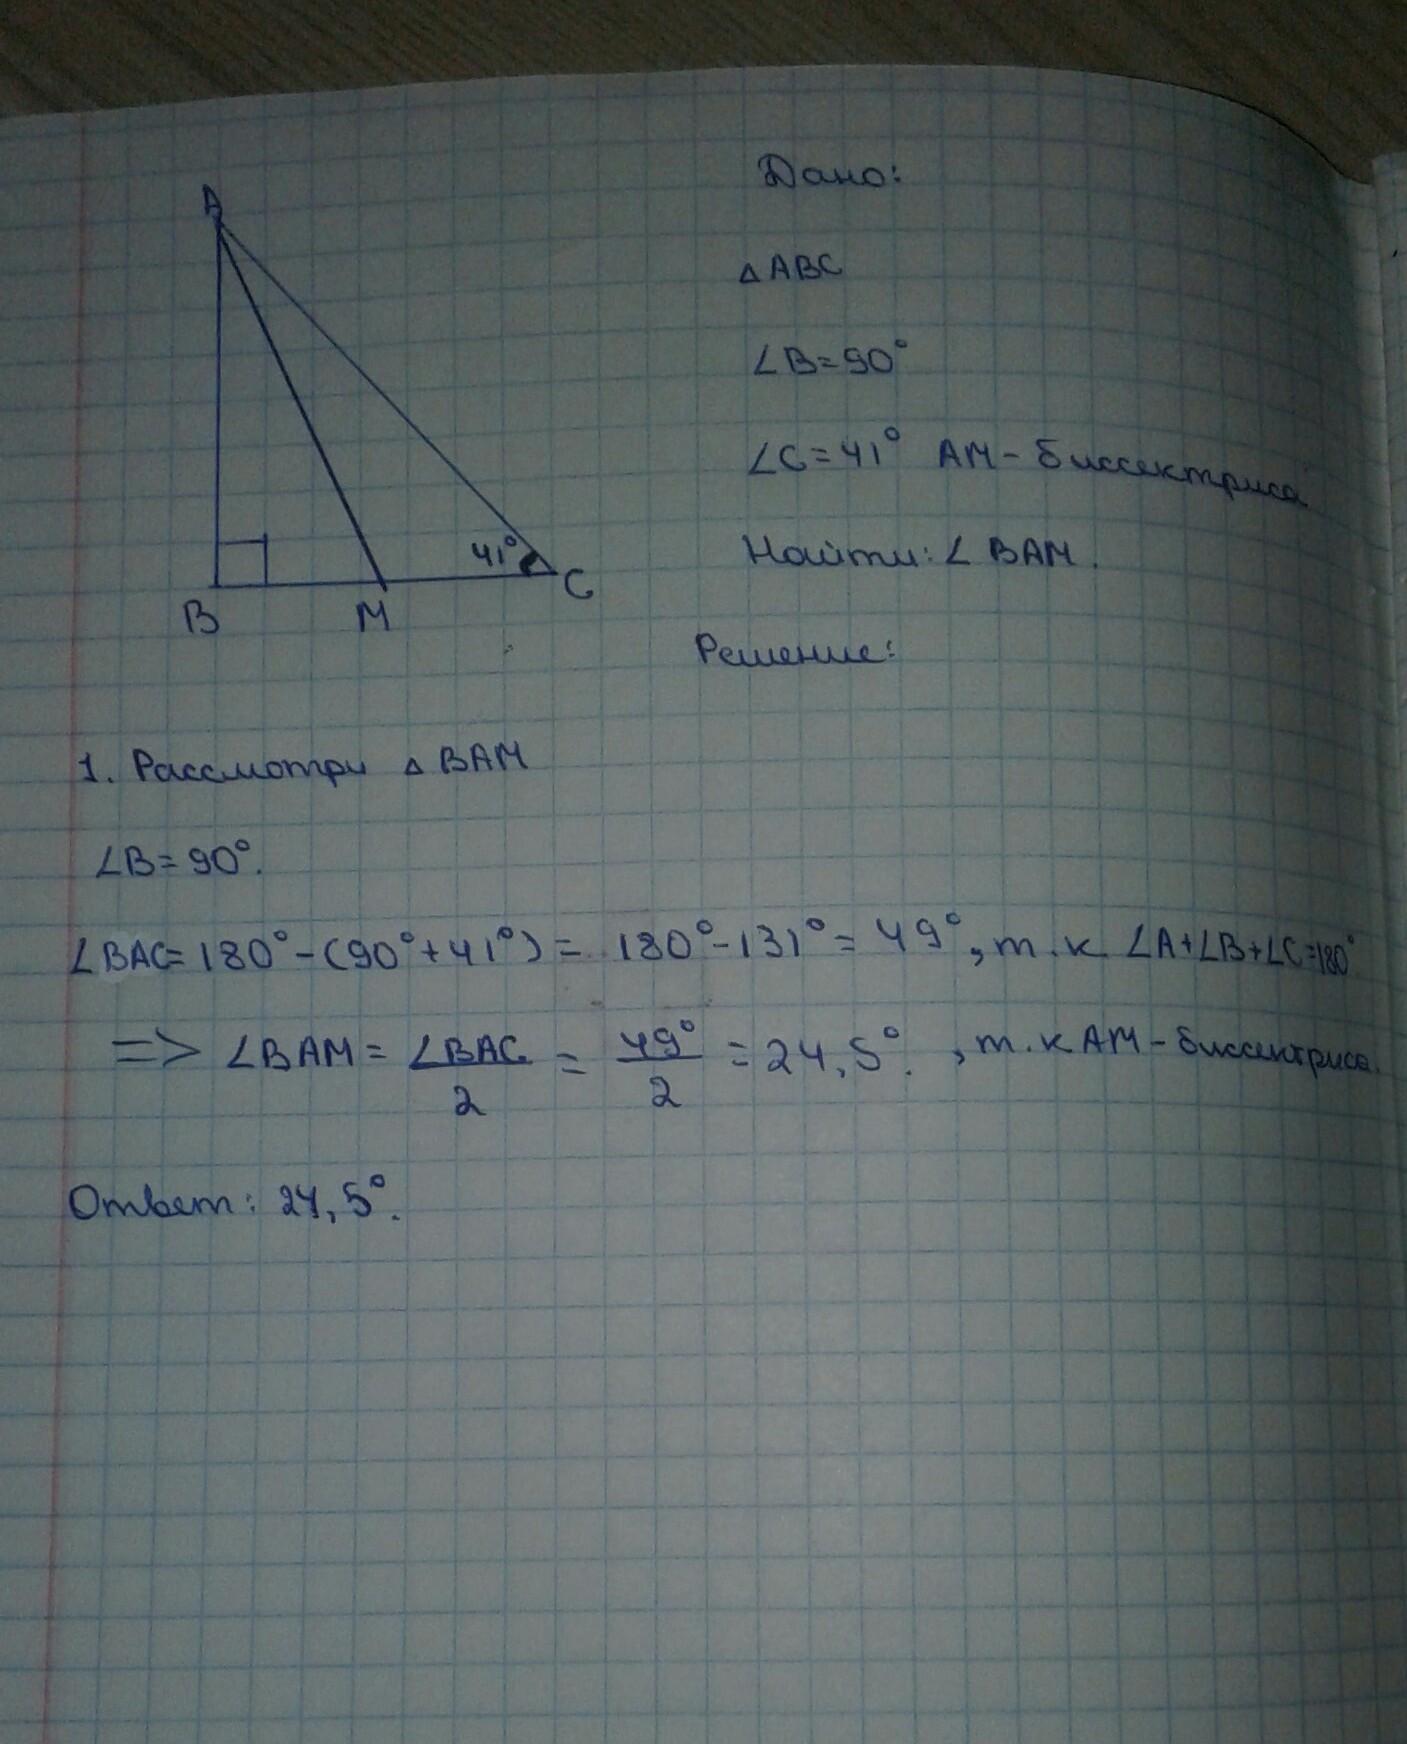 A
B
M
C
41°
Дано:
△ABC
∠B=90°
∠C=41° AM - биссектриса
Найти: ∠BAM.
Решение:
1. Рассмотри △BAM
∠B=90°.
∠BAC=180°-(90°+41°)=180°-131°=49°, т.к ∠A+∠B+∠C=180°
=> ∠BAM = ∠BAC/2 = 49°/2 = 24,5°. , т.к AM - биссектриса.
Ответ: 24,5°.